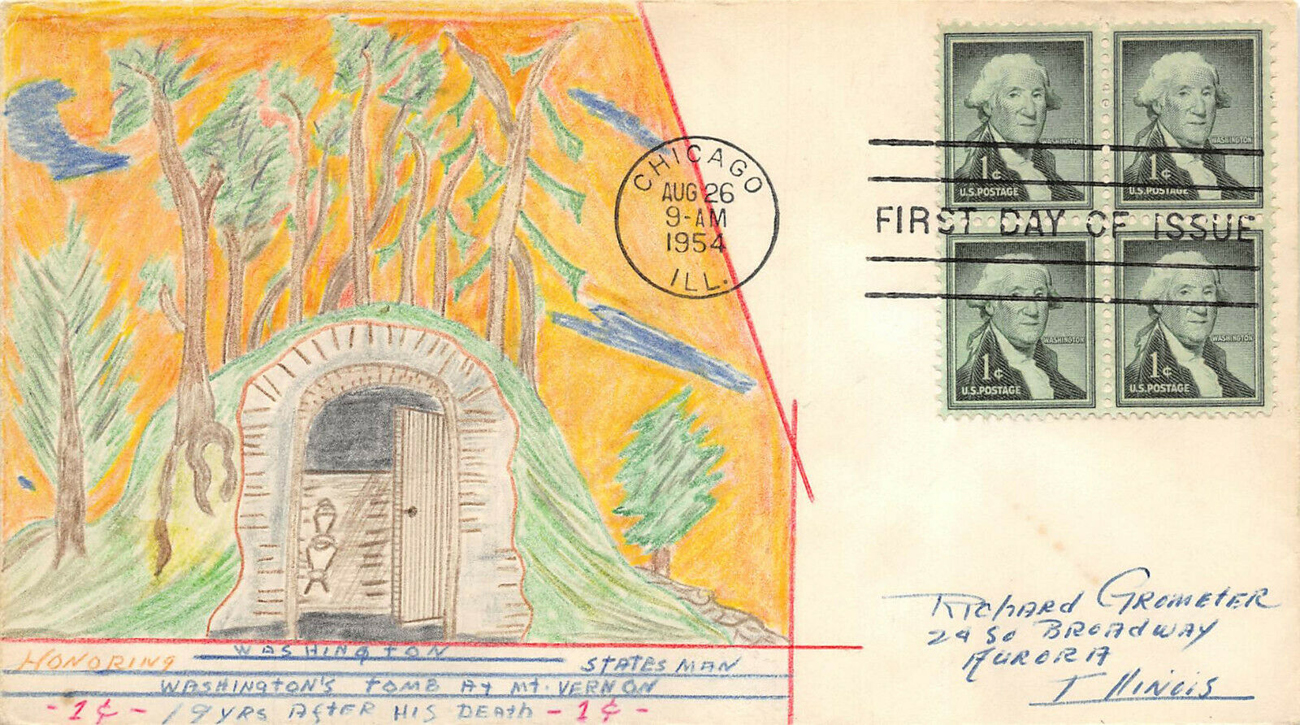 CHICAGO
AUG 26
9-AM
1954
ILL.
WASHINGTON
1¢
U.S. POSTAGE
WASHINGTON
1¢
U.S. POSTAGE
FIRST DAY OF ISSUE
WASHINGTON
1¢
U.S. POSTAGE
WASHINGTON
1¢
U.S. POSTAGE
Richard Grometer
24 So Broadway
Aurora
Illinois
HONORING WASHINGTON STATESMAN
WASHINGTON'S TOMB At Mt. VERNON
-1¢- 19 YRS AftER HIS DEAth -1¢-